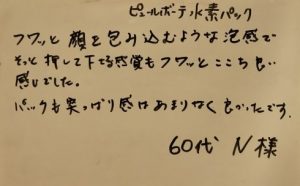 ピュールボーテ水素パック
フワッと顔を包み込むような泡感で
そっと押して下さる感覚もフワッとここち良い
感じでした。
パックも突っぱり感はあまりなく良かったです。
60代 N様